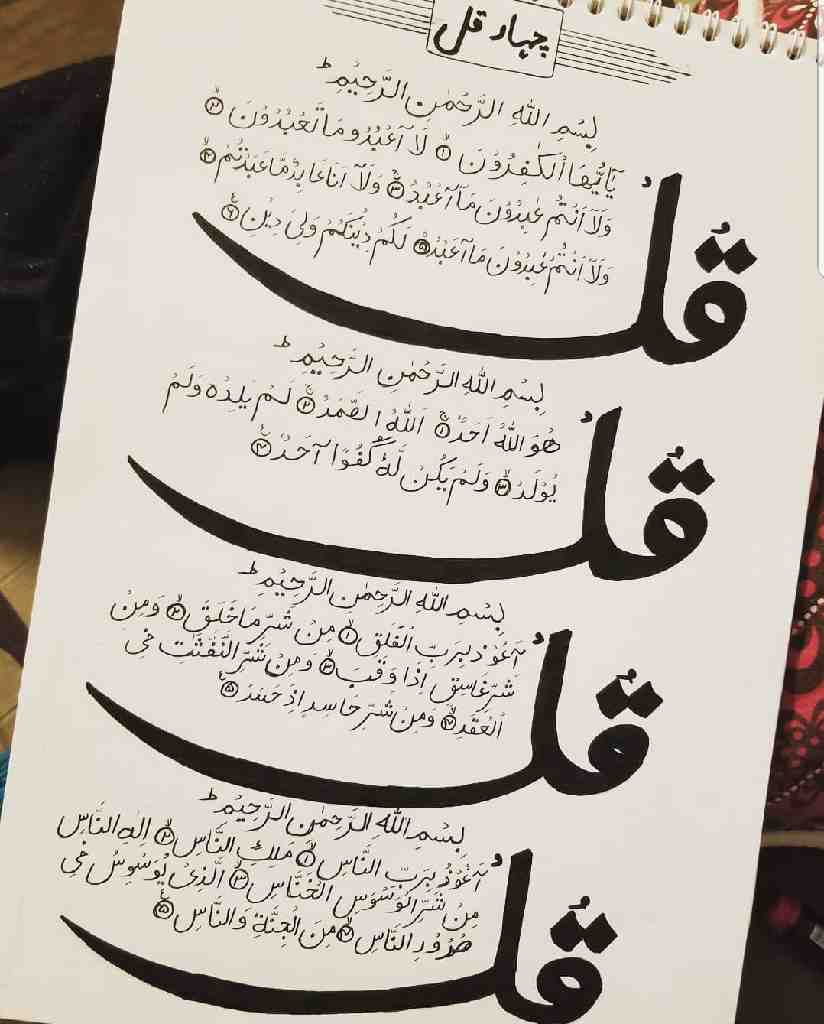 چہار قل
بِسْمِ اللهِ الرَّحْمٰنِ الرَّحِيْمِ ط
قُلْ
يٰٓاَيُّهَا الْكٰفِرُوْنَ ۱ لَآ اَعْبُدُ مَا تَعْبُدُوْنَ ۲
وَلَآ اَنْتُمْ عٰبِدُوْنَ مَآ اَعْبُدُ ۳ وَلَآ اَنَا عَابِدٌ مَّا عَبَدْتُّمْ ۴
وَلَآ اَنْتُمْ عٰبِدُوْنَ مَآ اَعْبُدُ ۵ لَكُمْ دِيْنُكُمْ وَلِيَ دِيْنِ ۶
بِسْمِ اللهِ الرَّحْمٰنِ الرَّحِيْمِ ط
قُلْ
هُوَ اللهُ اَحَدٌ ۱ اَللهُ الصَّمَدُ ۲ لَمْ يَلِدْ ە وَلَمْ
يُوْلَدْ ۳ وَلَمْ يَكُنْ لَّهٗ كُفُوًا اَحَدٌ ۴
بِسْمِ اللهِ الرَّحْمٰنِ الرَّحِيْمِ ط
قُلْ
اَعُوْذُ بِرَبِّ الْفَلَقِ ۱ مِنْ شَرِّ مَا خَلَقَ ۲ وَمِنْ
شَرِّ غَاسِقٍ اِذَا وَقَبَ ۳ وَمِنْ شَرِّ النَّفّٰثٰتِ فِي
الْعُقَدِ ۴ وَمِنْ شَرِّ حَاسِدٍ اِذَ حَسَدَ ۵
بِسْمِ اللهِ الرَّحْمٰنِ الرَّحِيْمِ ط
قُلْ
اَعُوْذُ بِرَبِّ النَّاسِ ۱ مَلِكِ النَّاسِ ۲ اِلٰهِ النَّاسِ
مِنْ شَرِّ الْوَسْوَسِ الْخَنَّاسِ ۳ الَّذِيْ يُوَسْوِسُ فِي
صُدُوْرِ النَّاسِ ۴ مِنَ الْجِنَّةِ وَالنَّاسِ ۵